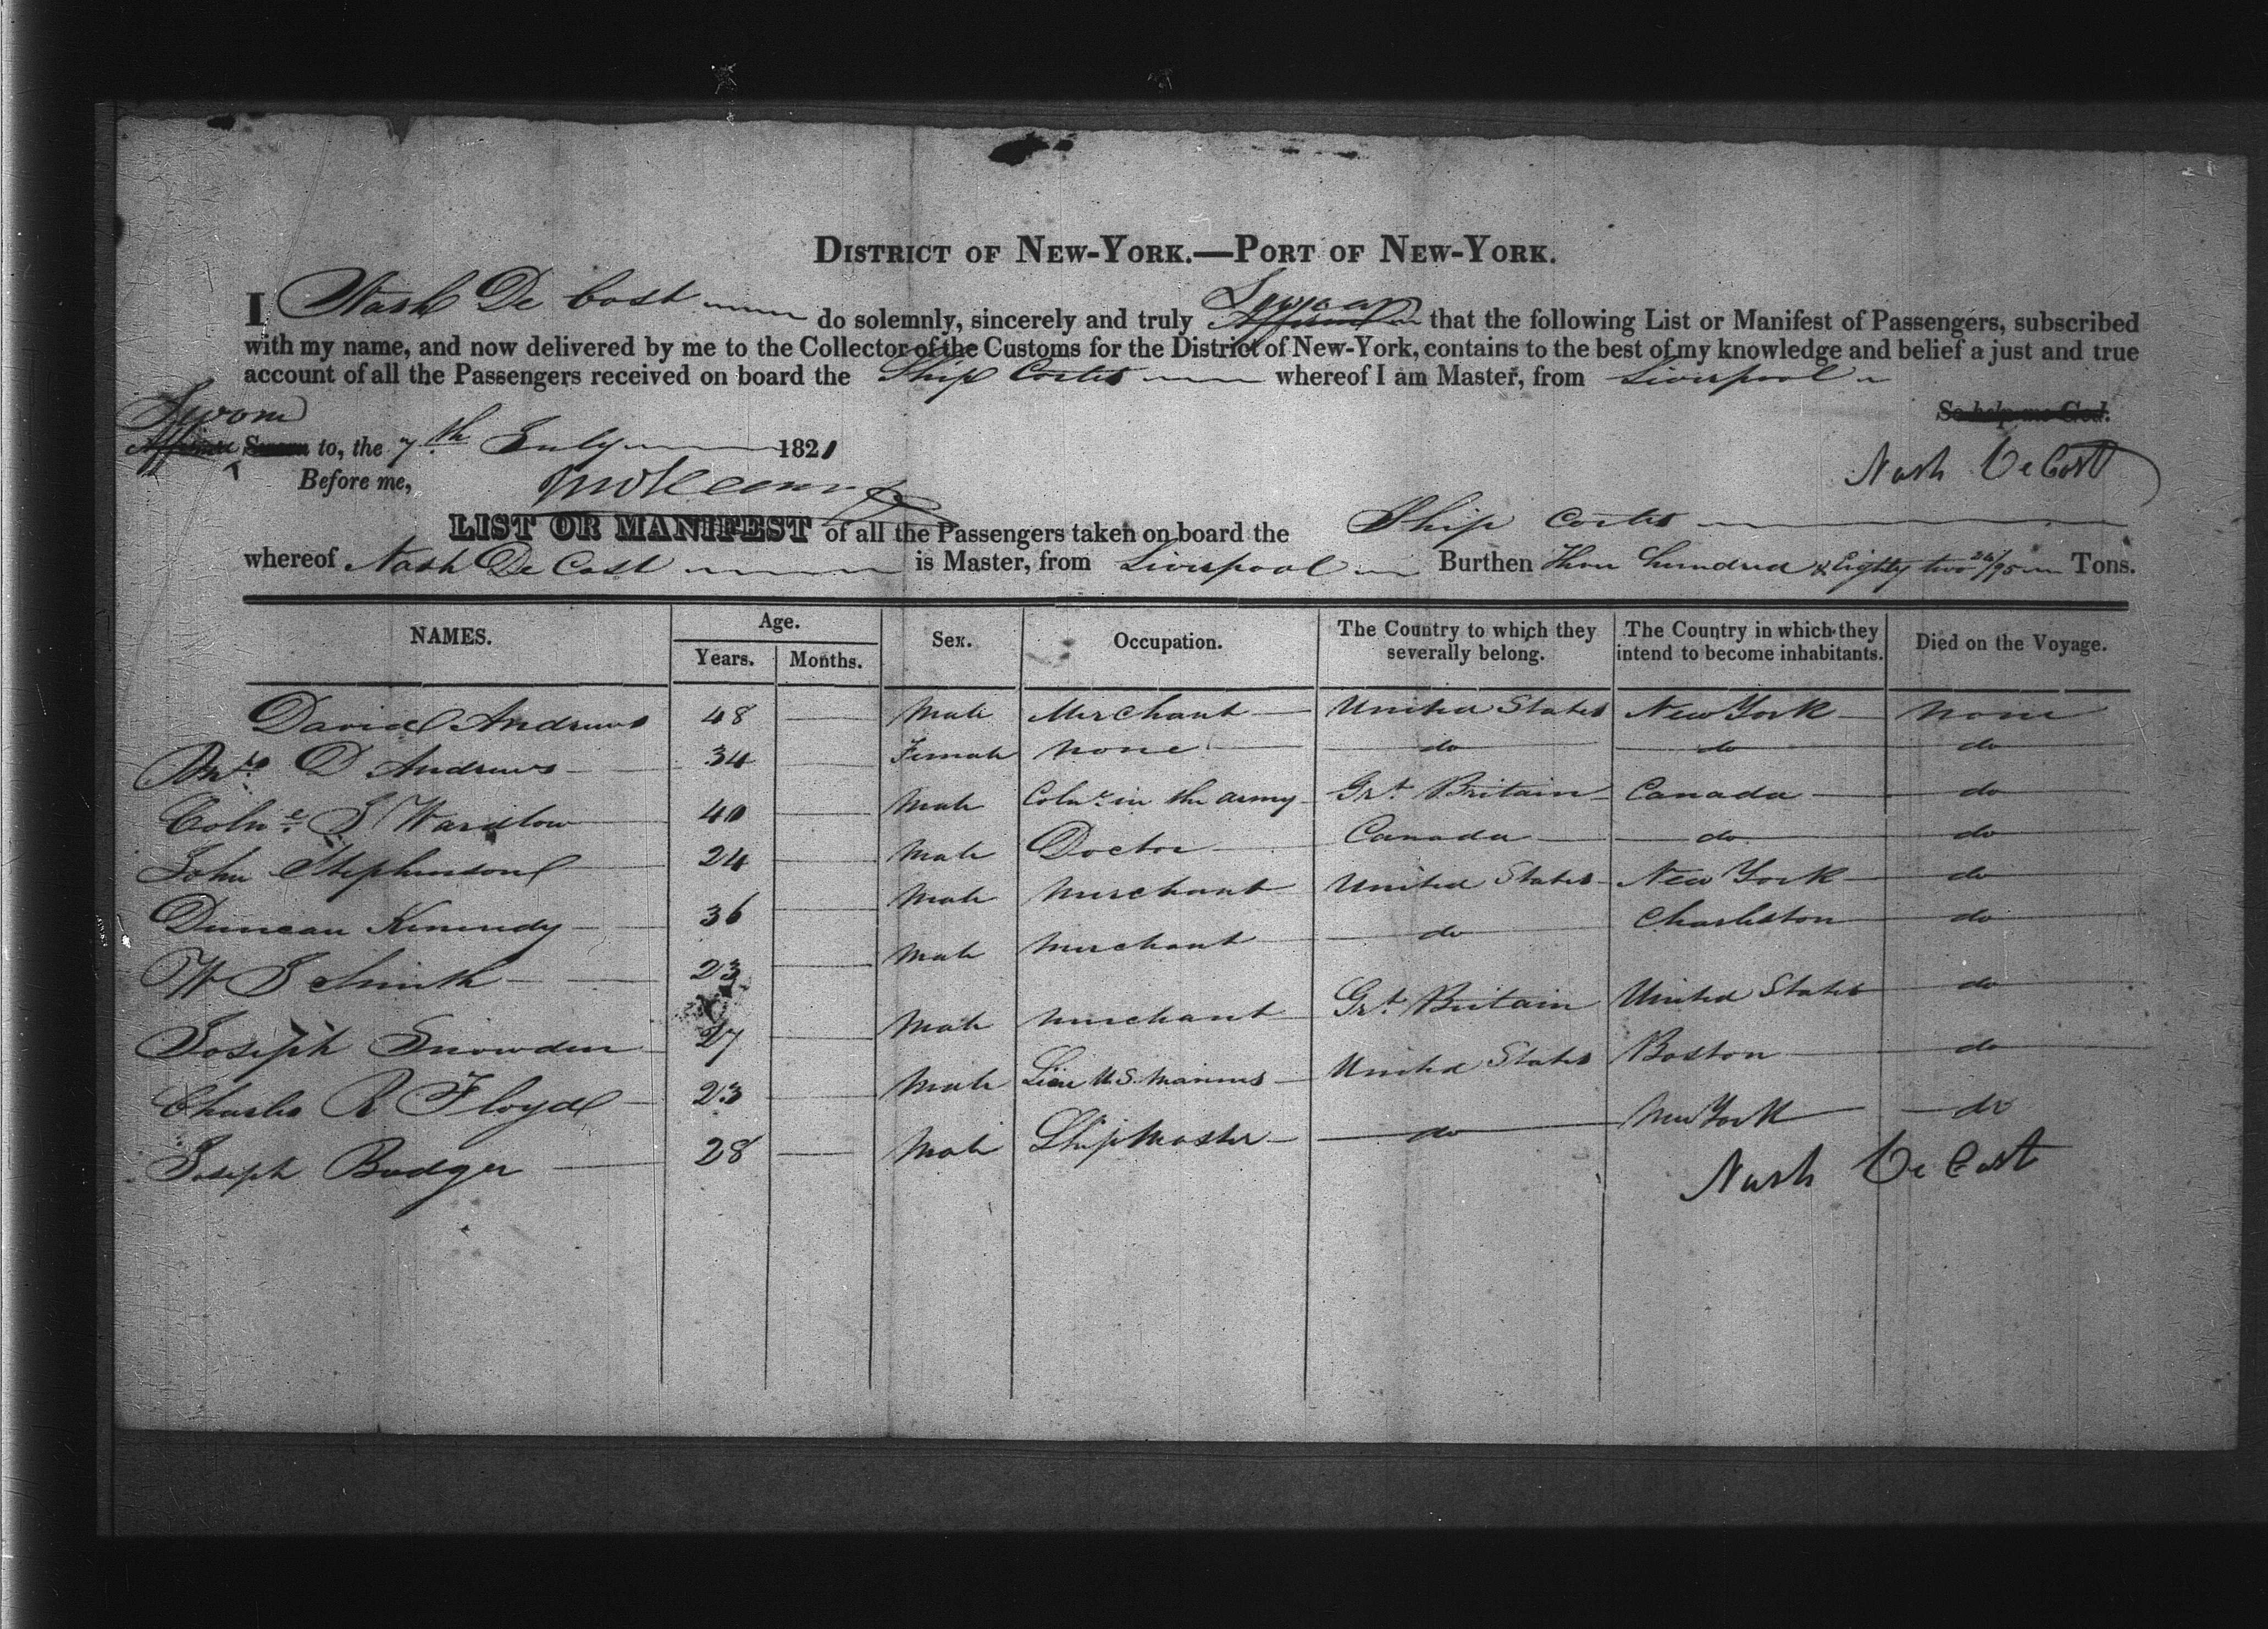 DISTRICT OF NEW-YORK.—PORT OF NEW-YORK.
I Nash De Cost do solemnly, sincerely and truly Swear Affirm that the following List or Manifest of Passengers, subscribed
with my name, and now delivered by me to the Collector of the Customs for the District of New-York, contains to the best of my knowledge and belief a just and true
account of all the Passengers received on board the Ship Cortes whereof I am Master, from Liverpool
So help me God.
Sworn
Affirmed Sworn to, the 7th July 1821
Nash De Cost
Before me,
LIST OR MANIFEST of all the Passengers taken on board the Ship Cortes
whereof Nash De Cost is Master, from Liverpool Burthen Three hundred & Eighty two 26/95 Tons.
NAMES. Age. Years. Months. Sex. Occupation. The Country to which they severally belong. The Country in which they intend to become inhabitants. Died on the Voyage.
David Andrews 48 Male Merchant United States New York none
Mrs D Andrews 34 Female none do do do
Colne S Wardlow 40 Male Colnl in the army Grt Britain Canada do
John Stephenson 24 Male Doctor Canada do do
Duncan Kennedy 36 Male Merchant United States New York do
W S Smith 23 Male Merchant do Charleston do
Joseph Snowden 27 Male Merchant Grt Britain United States do
Charles R Floyd 23 Male Lieu U.S. Marines United States Boston do
Joseph Badger 28 Male Ship Master do New York do
Nash De Cost